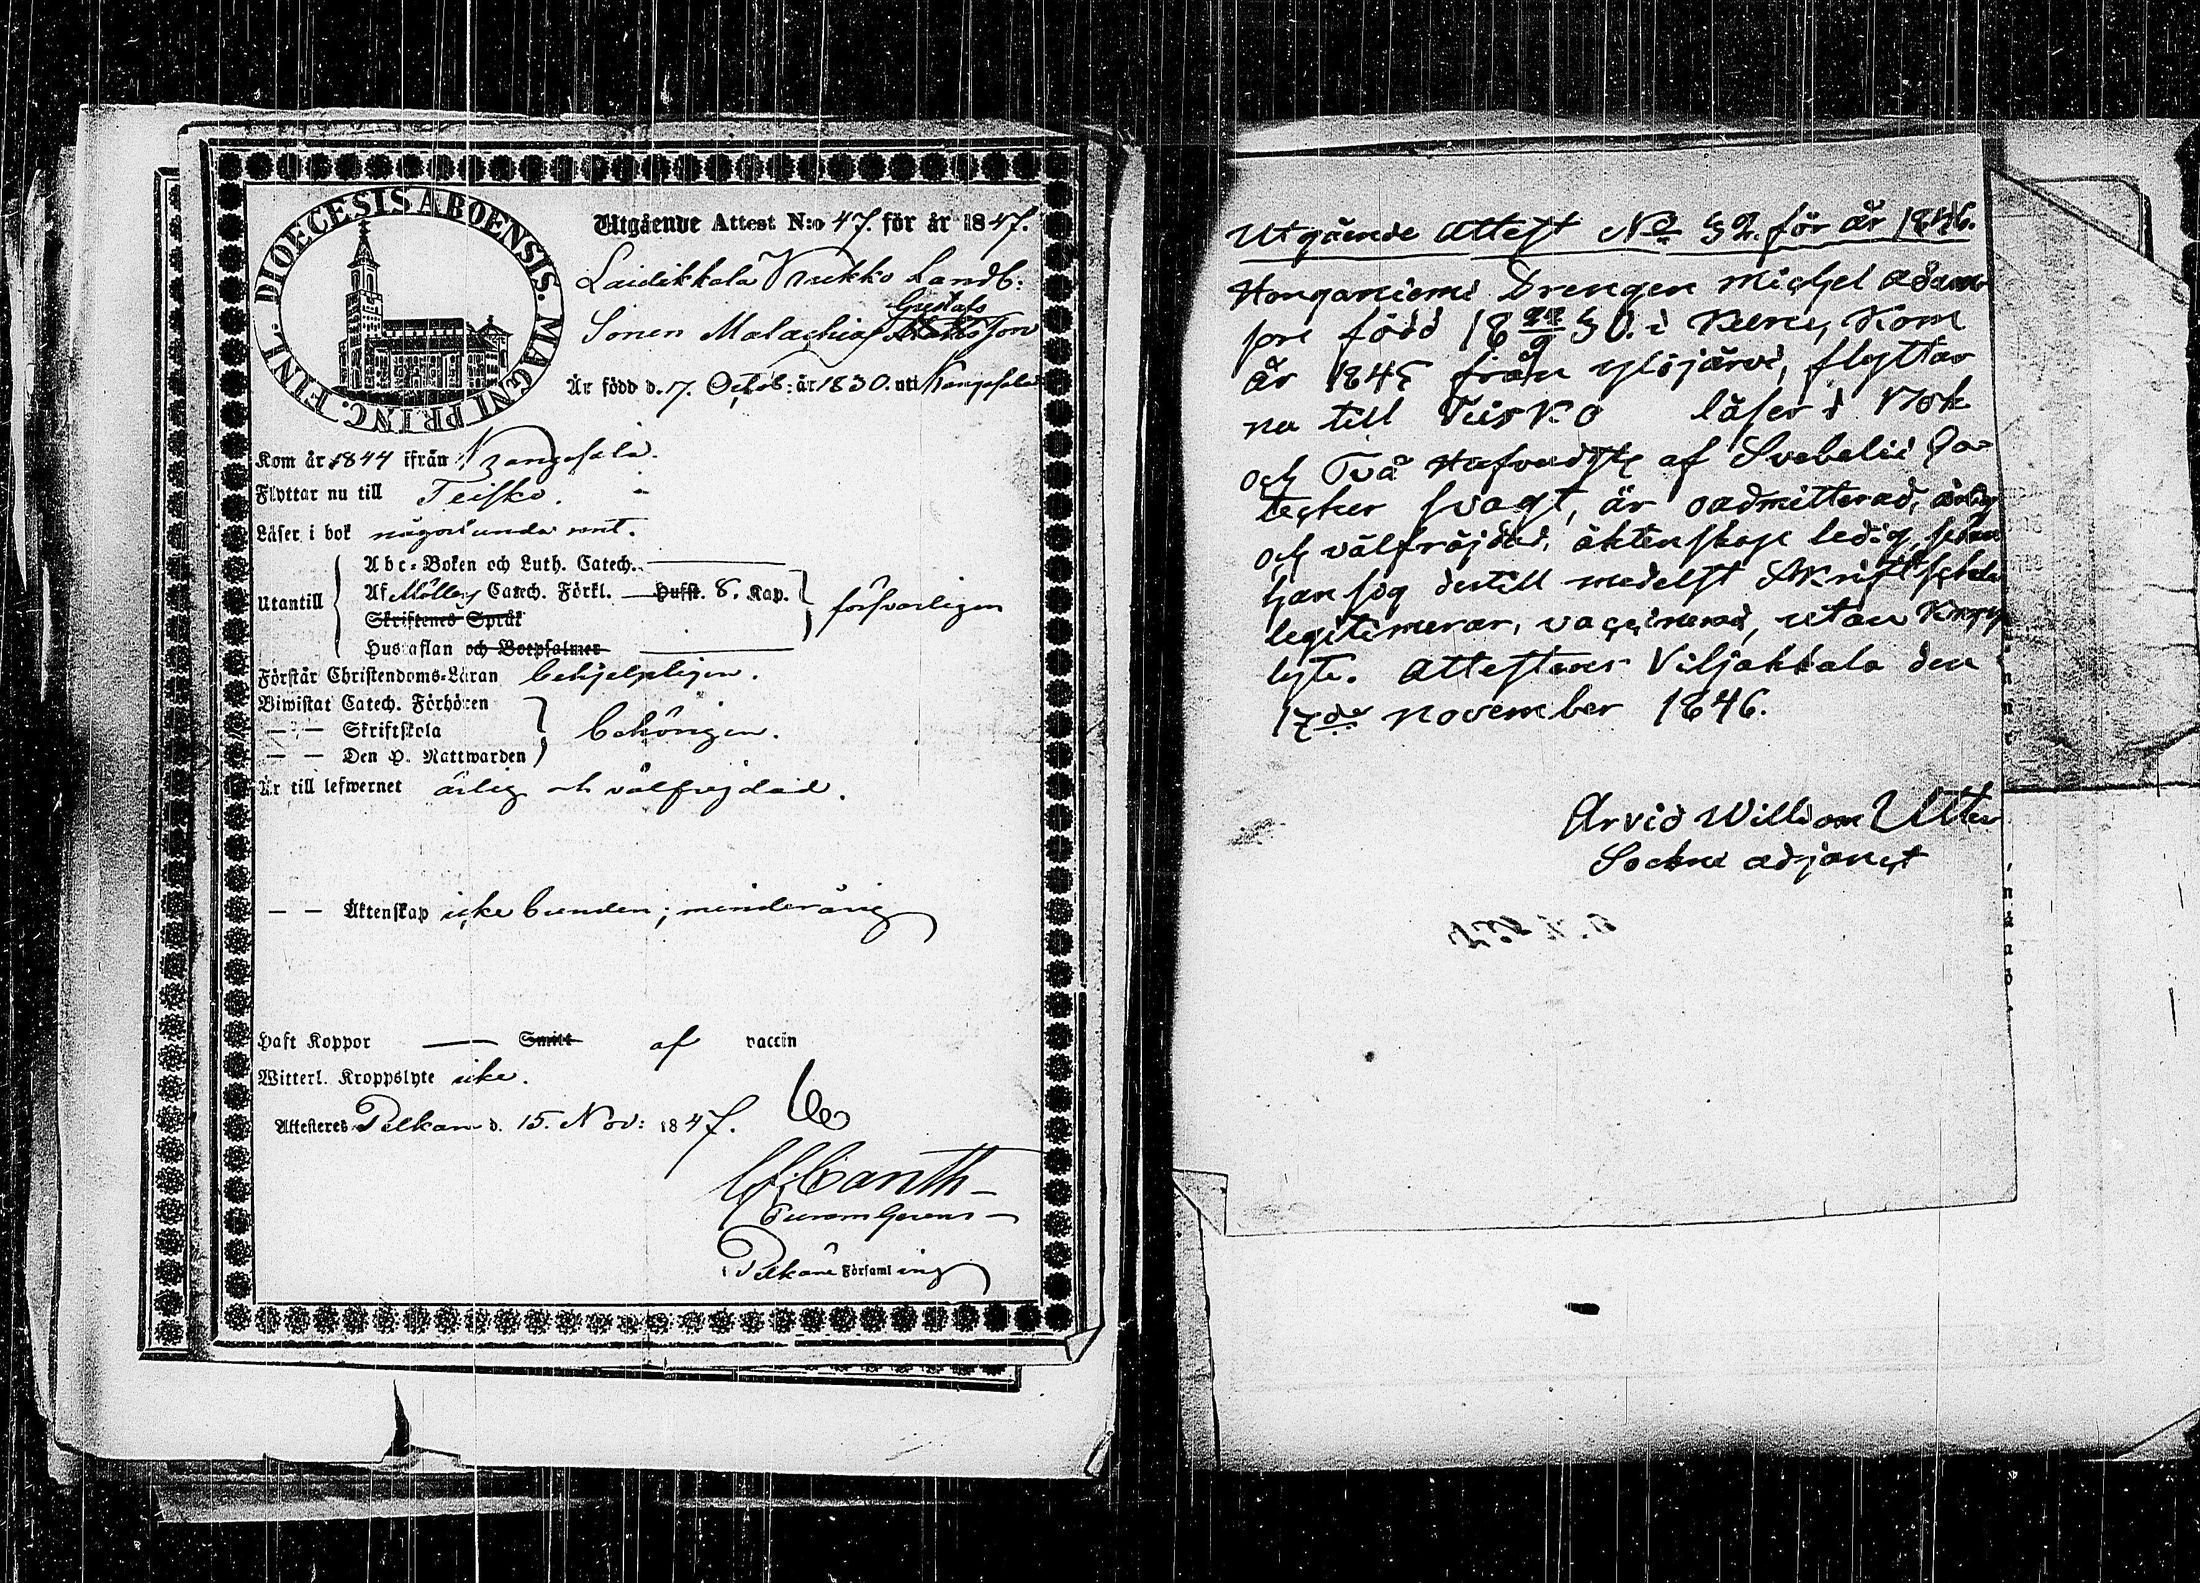 DIOECESIS ABOENSIS. MAGNI PRINC. FINL.
Utgående Attest N:o 47. för år 1847.
Laidikkala Krukko Landb:
Gustafs
Sonen Malachias son
Är född d. 17. Octob: år 1830. uti Kangasala
Kom år 1844 ifrån Kangasala.
Flyttar nu till Teisko.
Läser i bok någorlunda rent.
Utantill
Abc-Boken och Luth. Catech.
Af Möllers Catech. Förkl. — Hufst. 8. Kap.
Skriftenes Språk
Hustaflan och Botpsalmer
försvarligen
Förstår Christendoms-Läran behjelpligen.
Biwistat Catech. Förhören
— — Skriftskola
— — Den H. Nattwarden
behörigen.
Är till lefwernet ärlig och välfrejdad.
— — Äktenskap icke bunden; minderårig
Haft Koppor — Smitt af vaccin
Witterl. Kroppslyte icke.
Attesteres Pelkäne d. 15. Nov: 1847.
Canth
Pelkäne Församling
Utgående Attest No 32. för år 1846.
Honganiemi Drengen Michel Adams
son född 18 22/9 30. i Kuru, Kom
år 1845 från Ylöjärvi, flyttar
nu till Teisko läser i Bok
och Två Hufvudstr af Svebelii Ca=
techer svagt, är oadmitterad, ärlig
och välfräjdad, äktenskap ledig, sedan
han sig dertill medelst Skriftskola
legitimerar, vaccinerad, utan Kropps
lyte. Attesterar Viljakkala den
17de November 1846.
Arvid William
Sockne adjunct